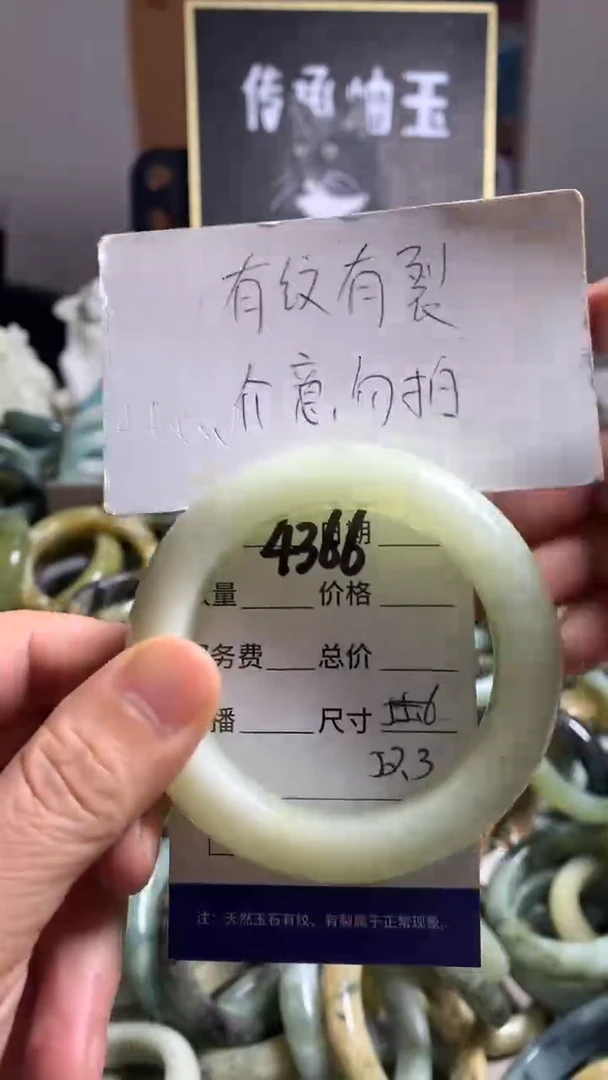 传承岫玉
有纹有裂
介意勿拍
4366 日期
量 价格
务费 总价
播 尺寸
52.3
注：天然玉石有纹、有裂属于正常现象。